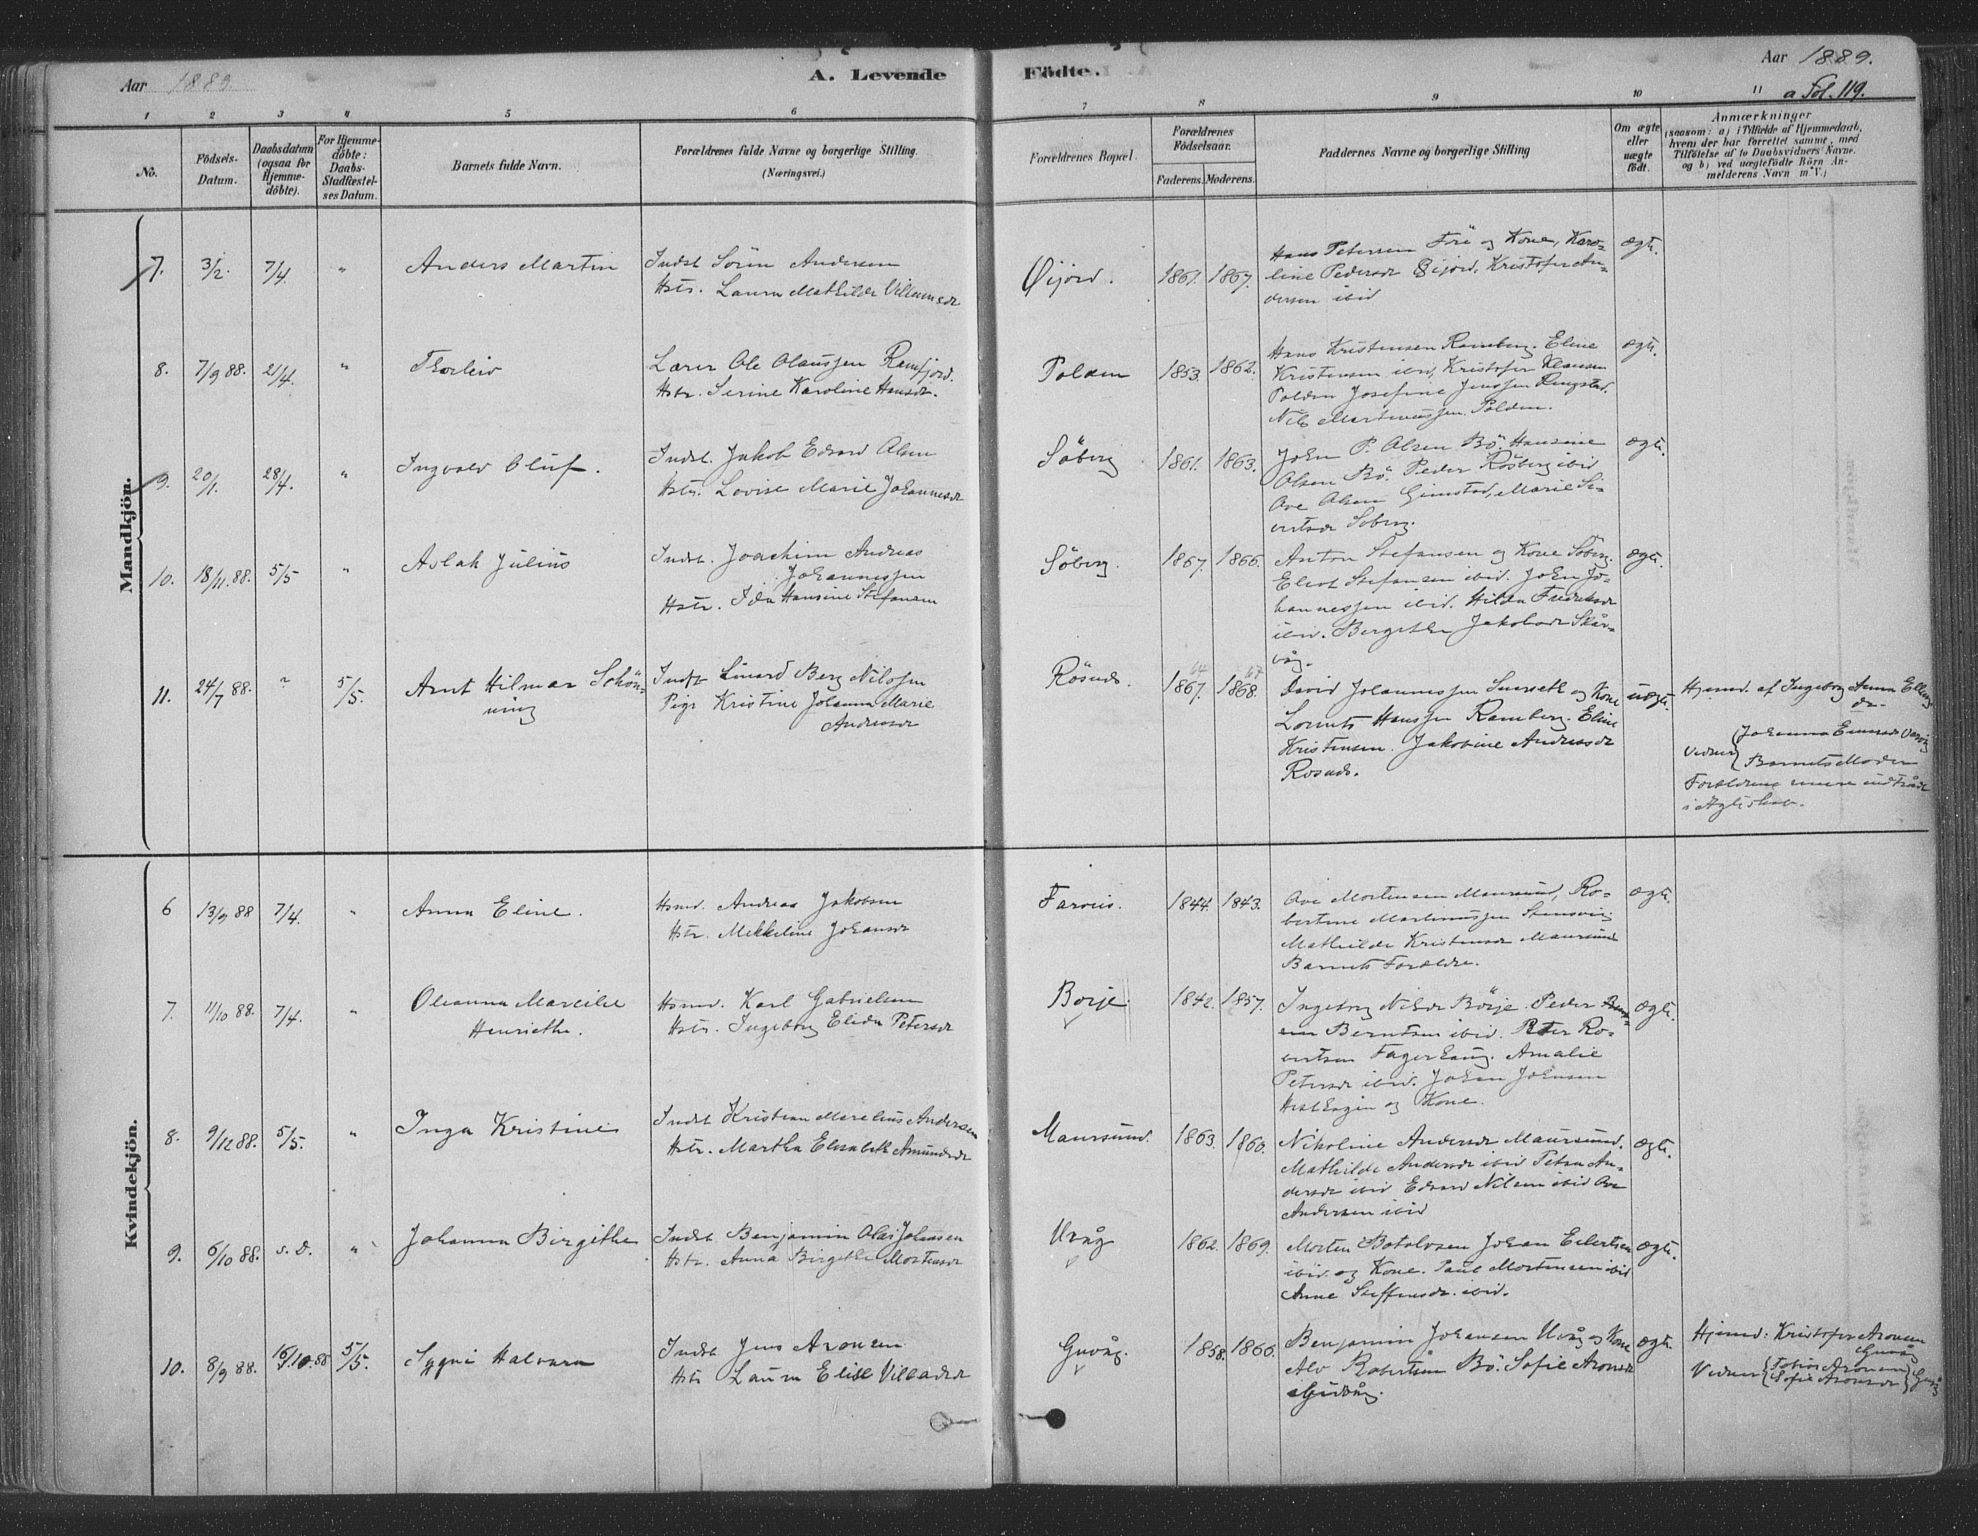 Aar 1889.
A. Levende
Födte.
Aar 1889.
a Fol. 119.
1 2 3 4 5 6 7 8 9 10 11
No.
Födsels-
Datum.
Daabsdatum
(ogsaa for
Hjemme-
döbte).
For Hjemme-
döbte:
Daabs-
Stadfæstel-
ses Datum.
Barnets fulde Navn.
Forældrenes fulde Navne og borgerlige Stilling
(Næringsvei.)
Forældrenes Bopæl.
Forældrenes
Födselsaar.
Faderens. Moderens.
Faddernes Navne og borgerlige Stilling
Om ægte
eller
uægte
födt.
Anmærkninger
(saasom: a) i Tilfælde af Hjemmedaab,
hvem der har forrettet samme, med
Tilföielse af to Daabsvidners Navne,
og b) ved uægtefödte Börn An-
melderens Navn m. V.)
Mandkjön.
7. 3/2. 7/4. " Anders Martin
Indst Sören Andersen
Hstr. Laura Mathilde Villumsdr
Öijord. 1861. 1867.
Hans Petersen Före og Kone, Karo-
line Pedersdr Öijord, Kristofer An-
dersen ibid
ægte.
8. 7/9 88. 21/4. " Thorleiv
Lærer Ole Olaussen Ramfjord.
Hstr. Serine Karoline Hansdr.
Polden 1853. 1862.
Hans Kristensen Ramberg. Eline
Kristensen ibid, Kristofer Klausen
Polden Josefine Jenssen Ringstad.
Nils Martinussen Polden.
ægte.
9. 20/1. 28/4. " Ingvald Oluf.
Indst. Jakob Edvard Olsen
Hstr. Lovise Marie Johannesdr
Söberg 1861. 1863.
John P. Olsen Bö. Hansine
Olsen Bö. Peder Rösberg ibid
Ove Olsen Gimstad, Marie Si-
vertsdr Soberg.
ægte.
10. 18/11. 88. 5/5 " Aslak Julius
Indst. Joachim Andreas
Johannessen
Hstr. Ida Hansine Stefansen
Söberg. 1867. 1866.
Anton Stefansen og Kone Söberg.
Eliot Stefansen ibid. John Jo-
hannessen ibid. Hilda Fredriksdr
ibid. Bergithe Jakobsdr Skår-
våg.
ægte.
11. 24/7 88. " 5/5. Arnt Hilmar Schön-
ning
Indst Linard Berg Nilssen
Pige Kristine Johanna Marie
Andreasdr
Rösnes. 64 1867. 67 1868.
David Johannessen Smerseth og Kone
Lorents Hanssen Ramberg. Eline
Kristensen. Jakobine Andreasdr
Rosnes.
uægte.
Hjemd. af Ingeborg Anna Ellings
dr.
Vidner { Johanna Einersdr
Barnets Moder
Forældrene senere indtrådt
i Ægteskab.
Kvindekjön.
6 13/9 88 7/4. " Anna Eline.
Hsmd. Andreas Jakobsen
Hstr. Mekkeline Johansdr
1844. 1843.
Ove Mortensen Maursund, Ro-
bertine Martinussen
Mathilde Kristensdr Maursund
Barnets Forældre.
ægte.
7. 11/10 88. 7/4. " Oleanna Mareilie
Henriethe.
Hsmd. Karl Gabrielsen
Hstr. Ingeborg Elida Petersdr
Börje. 1842. 1857.
Ingeborg Nilsdr Börje. Peder
Berntsen ibid. Peter Ro-
bertsen Fagerhaug. Amalie
Petersdr ibid. Johan Johnsen
og Kone.
ægte.
8. 9/12 88. 5/5. " Inga Kristine
Indst Kristian Marelius Andersen
Hstr. Martha Elisabeth Amundsdr
Maursund. 1863. 1860.
Nikoline Andersdr Maursund.
Mathilde Andersdr ibid Petra An-
dersdr ibid Edvard Nilsen ibid Ove
Andersen ibid
ægte.
9. 6/10 88. s. d. " Johanna Birgithe
Indst Benjamin Olai Johansen
Hstr. Anna Birgithe Mortensdr
Uvåg 1862. 1869.
Morten Botolvsen Johan Eilertsen
ibid. og Kone. Paul Mortensen ibid
Anne Steffensdr. ibid.
ægte.
10. 8/9 88. 16/10. 88 5/5. Sygni Halvara
Indst Jens Aronsen
Hstr Laura Elise Villadsdr
Guvåg. 1858. 1866.
Benjamin Johansen Uvåg og Kone
Alv Robertsen Bö. Sofie Aronsdr
Guvåg.
ægte.
Hjemd: Kristofer Aronsen
Guvåg
Vidner { Tobias Aronsen
Sofie Aronsdr } Guvåg